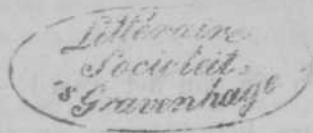 Littéraire
Sociëteit
's Gravenhage